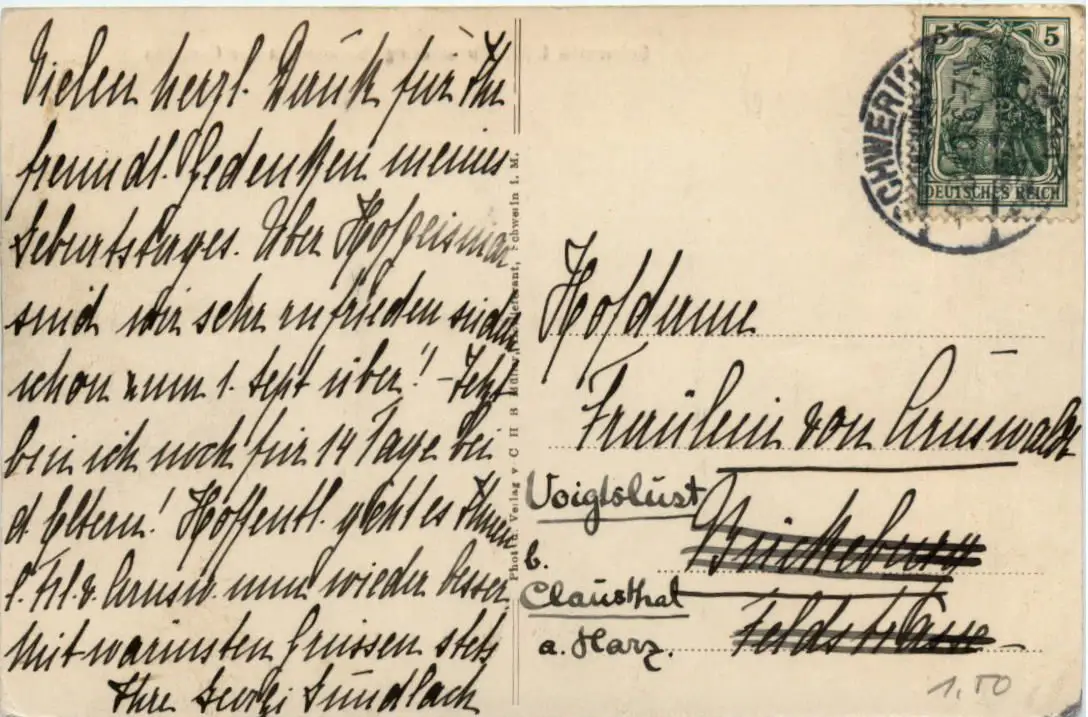 Vielen herzl. Dank für Ihr
freundl. Gedenken meines
Geburtstages. Über Hofgeismar
sind wir sehr zufrieden siedeln
schon zum 1. Sept über! – Jetzt
bin ich noch für 14 Tage bei
d. Eltern! Hoffentl. geht es Ihnen
l. Frl. v. Arnsw. nun wieder besser.
Mit wärmsten Grüssen stets
Ihre Gundlach
Phot u. Verlag v C H B Müller, Schwerin i. M.
5 5
DEUTSCHES REICH
SCHWERIN
Hofdame
Fräulein von Arnswaldt
Bückeburg
Feldstrasse
Voigtslust
b.
Clausthal
a. Harz.
1.50